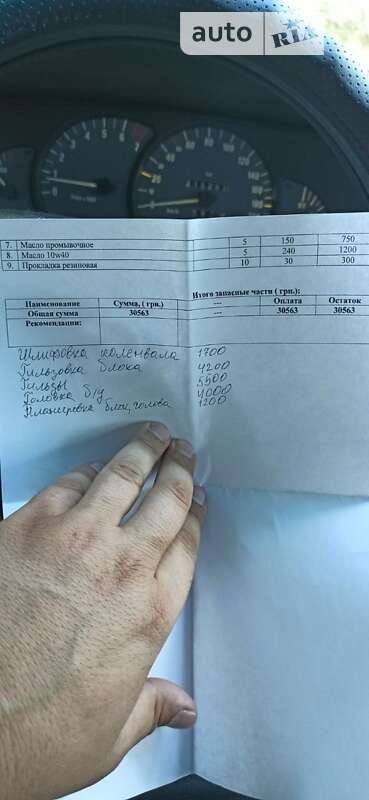 auto RIA
7. Масло промывочное 5 150 750
8. Масло 10w40 5 240 1200
9. Прокладка резиновая 10 30 300
Итого запасные части ( грн.):
Наименование Сумма, ( грн.) --- Оплата Остаток
Общая сумма 30563 --- 30563 30563
Рекомендации:
Шлифовка коленвала 1700
Гильзовка блока 4200
Гильзы 5500
Головка б/у 4000
Планировка блок, голова 1200